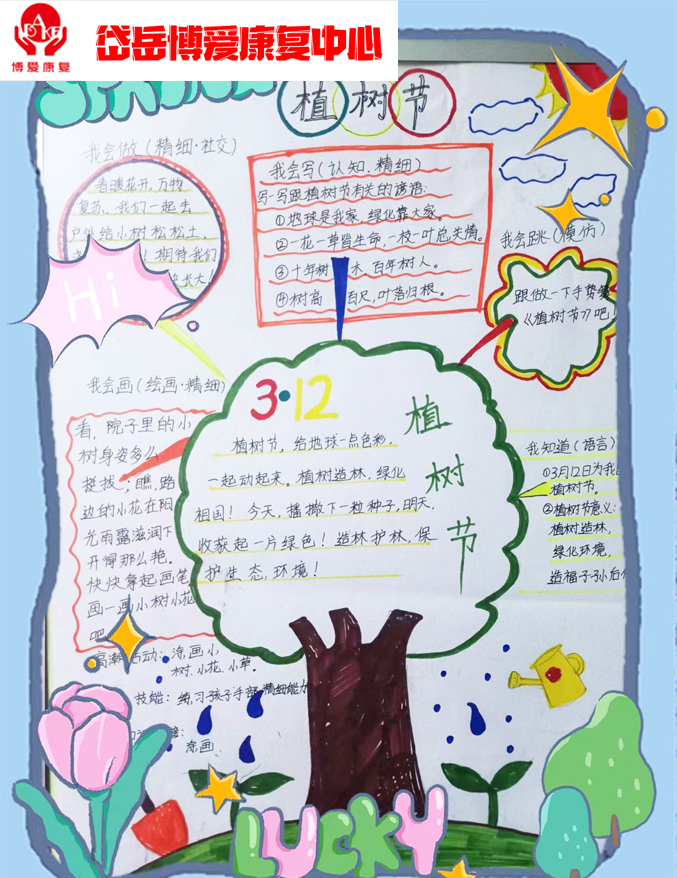 博爱康复
岱岳博爱康复中心
SPRING
植树节
我会做(精细·社交)
春暖花开,万物
复苏,我们一起去
户外给小树松松土,
!期待我们
快长大
Hi
我会写(认知.精细)
写一写跟植树节有关的谚语:
①地球是我家,绿化靠大家。
②一花一草皆生命,一枝一叶总关情。
③十年树木,百年树人。
④树高百尺,叶落归根。
我会跳(模仿)
跟做一下手势舞
《植树节》吧!
我会画(绘画·精细)
看,院子里的小
树身姿多么
挺拔;瞧,路
边的小花在阳
光雨露滋润下
开得那么艳。
快快拿起画笔
画一画小树小花
吧
3·12
植树节
植树节,给地球一点色彩,
一起动起来。植树造林,绿化
祖国!今天,播撒下一粒种子,明天,
收获起一片绿色!造林护林,保
护生态环境!
我知道(语言)
①3月12日为我
植树节。
②植树节意义:
植树造林,
绿化环境,
造福子子孙后
高潮活动:涂画小
树、小花、小草。
技能:练习孩子手部精细能力
涂画
LUCKY